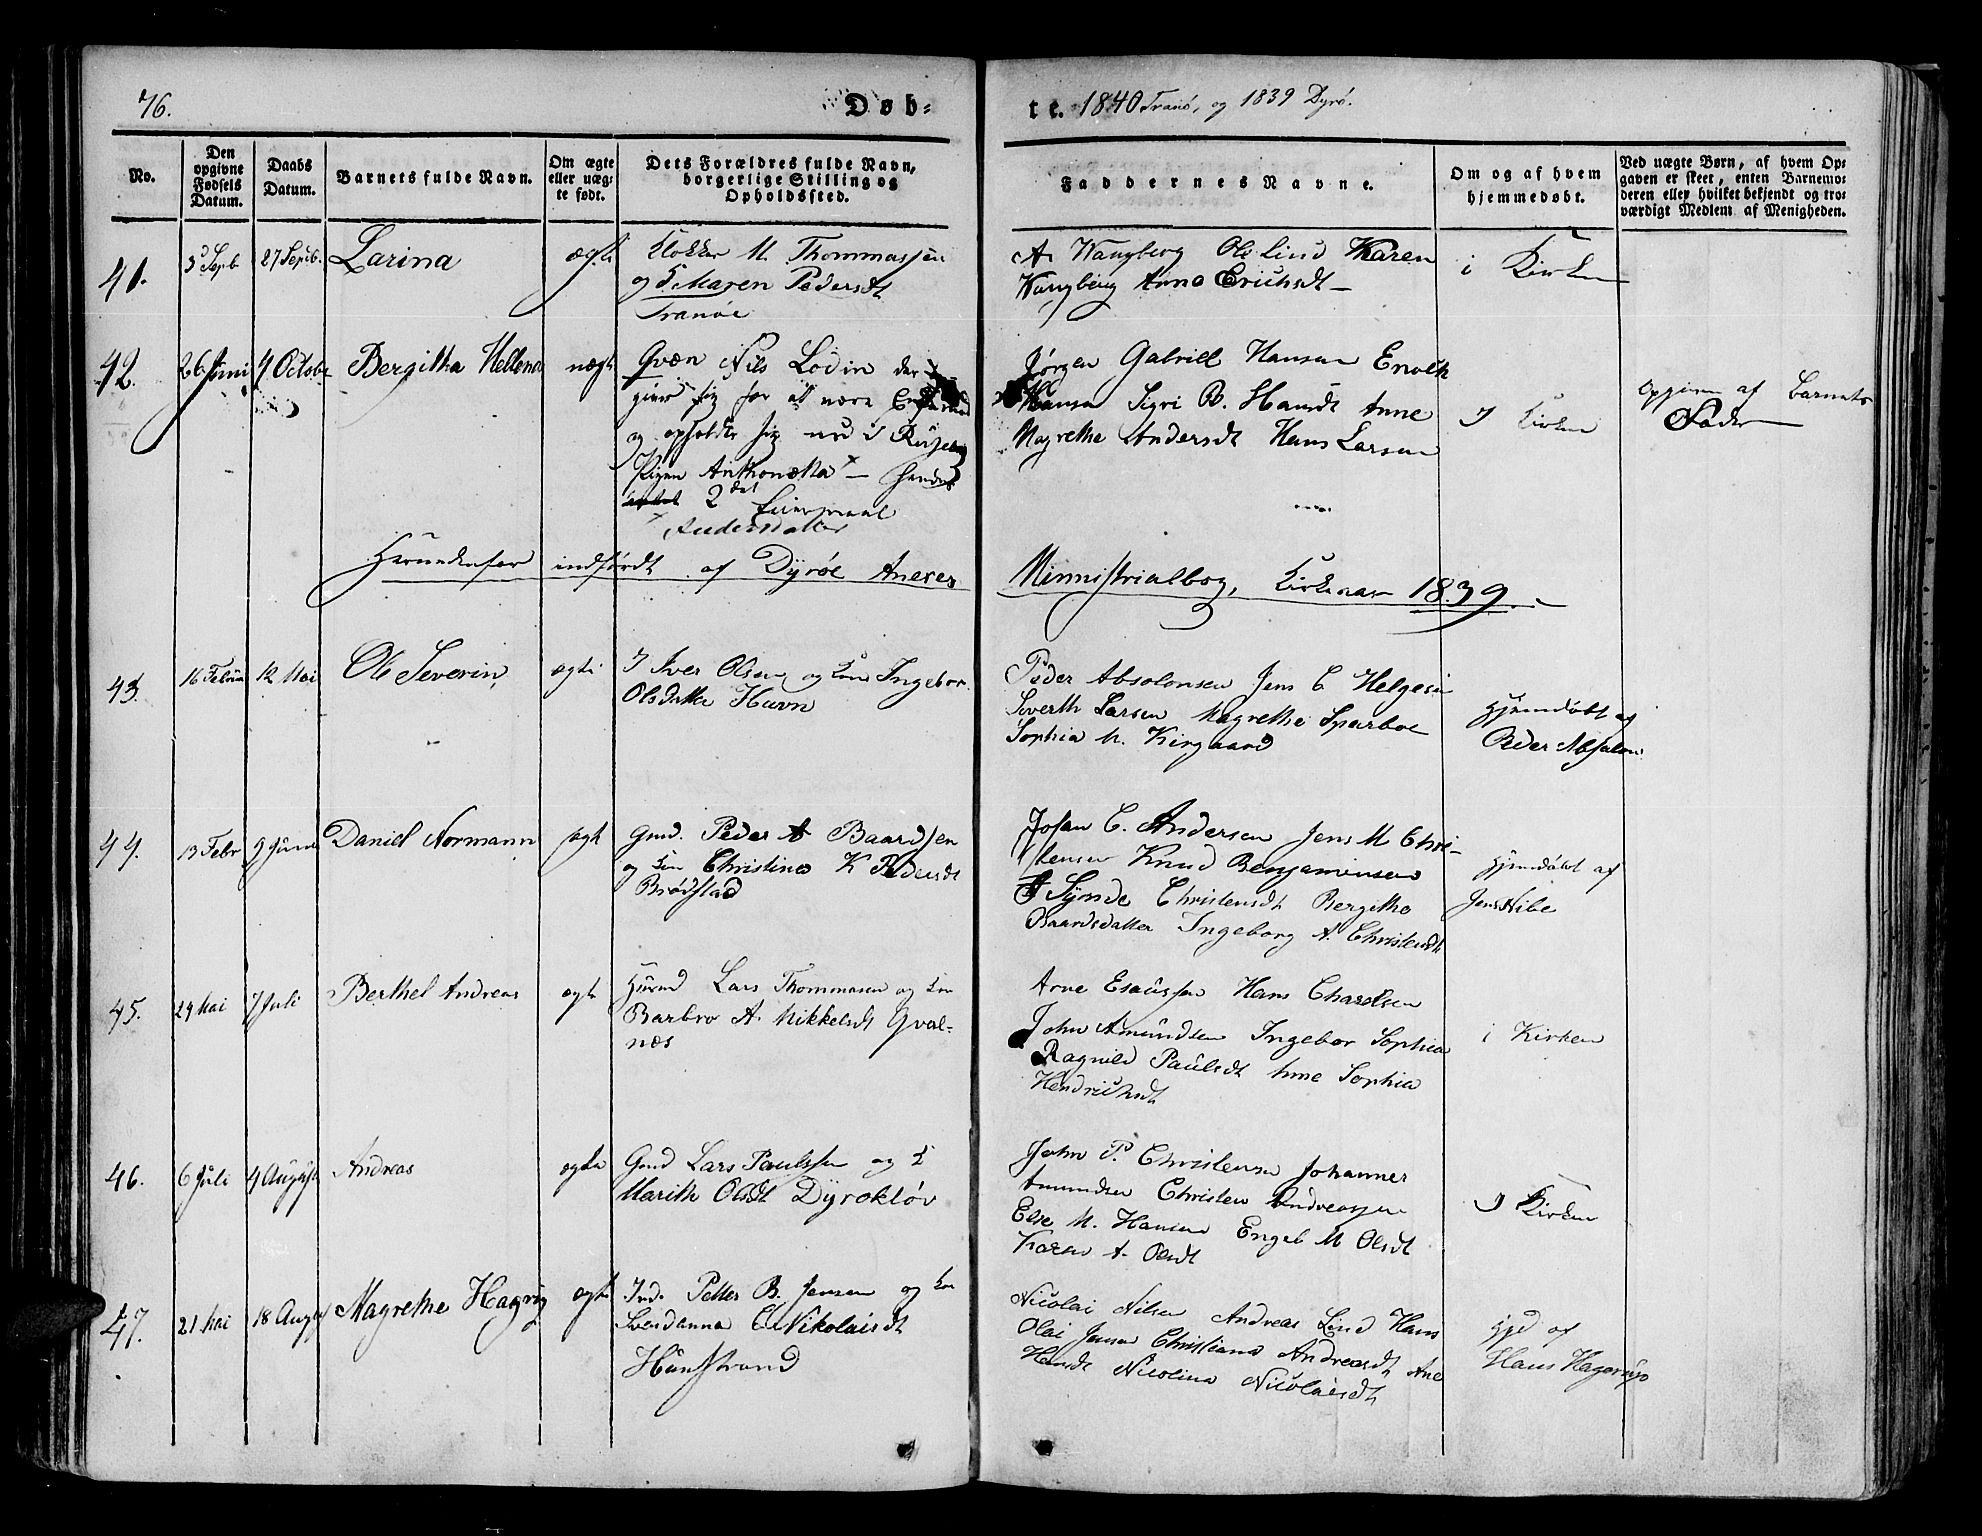 76.
Døb-
te. 1840 Tranø, og 1839 Dyrø.
No.
Den opgivne Fødsels Datum.
Daabs Datum.
Barnets fulde Navn.
Om ægte eller uægte født.
Dets Forældres fulde Navn, borgerlige Stilling og Opholdssted.
Faddernes Navne.
Om og af hvem hjemmedøbt.
Ved uægte Børn, af hvem Opgaven er skeet, enten Barnemoderen eller hvilket bekjendt og troværdigt Medlem af Menigheden.
41.
3d Sepb
27 Septb.
Larina
ægte
Klokker M. Thommassen
og K. Maren Pedersdt
Tranøe
A. Wangberg Ole Lind Karen
Wangberg Anne Erichsdt
i Kirken
42.
26 Juni
4 Octobr
Bergitha Hellena
uægte
Qvæn Nils Lodin der
giver sig for at være
og opholder sig ved
Pigen Anthonetta × hendes
2det Leiermaal
× Andersdatter
Jørgen Gabriel Hansen Enoch
Hansen Sigri B. Hansdt Anne
Magrethe Andersdt Hans Larsen
I Kirken
Opgiven af Barnets
Fader
Herunder indførdt af Dyrøe Anexes
Ministrialbog, Kirkeaar 1839.
43.
16 Februar
12 Mai
Ole Severin
ægte
I Iver Olsen og Kone Ingebor
Olsdatter Havn
Peder Absolonsen Jens C Helgesen
Siverth Larsen Magrethe Sparboe
Sophia M. Kirgaard
Hjemdøbt af
Peder Absalons
44.
13 Febr
9 Juni
Daniel Normann
ægte
Gmd. Peder A Baardsen
og Kone Christina K Pedersdt
Brødstad
Johan C. Andersen Jens M Chri-
stensen Knud Benjaminsen
Synde Christensdt Bergithe
Baardsdatter Ingeborg A. Christensdt
Hjemdøbt af
Jens Hibe
45.
29 Mai
7 Juli
Berthel Andreas
ægte
Huusmd Lars Thommasen og Kone
Barbro A. Mikkelsdt Qval-
næs
Arne Esaiassen Hans Charelsen
John Amundsen Ingebor Sophia
Ragnild Paulsdt Anne Sophia
Hendrichsdt
i Kirken
46.
6 Juli
4 August
Andreas
ægte
Gmd Lars Paulssen og K
Marith Olsdt Dyrøkløv
John P. Christensen Johannes
Amundsen Christen Andreassen
Else M. Hansen Engeb M Olsdt
Karen A. Olsdt
I Kirken
47.
21 Mai
18 August
Magrethe Hagrup
ægte
Ind. Petter B. Jensen og Kone
Swendanna E Nikolaisdt
Haustrand
Nicolai Nilsen Andreas Lind Hans
Olai Jensen Christiana Andreasdt Ane
Hansdt Nicolina Nicolaisdt
Hjd af
Hans Hagerup